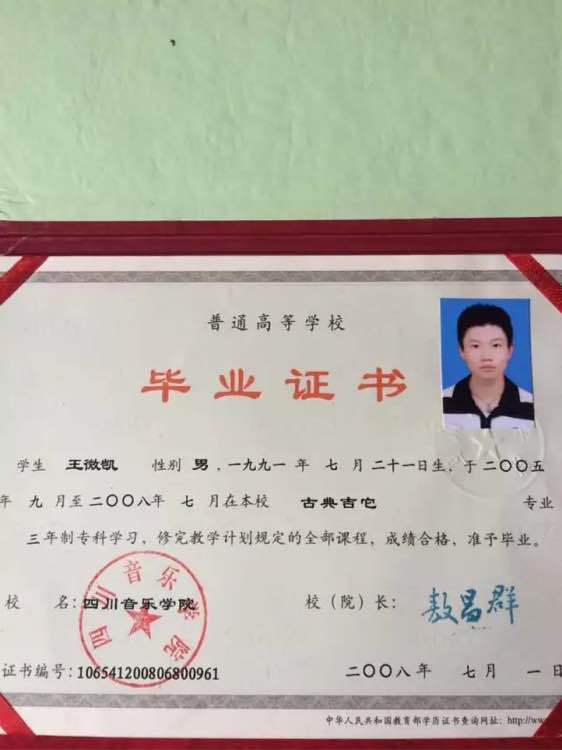 普通高等学校
毕业证书
学生 王微凯 性别 男，一九九一年 七 月 二十一日生，于 二〇〇五
年 九 月至 二〇〇八年 七 月在本校 古典吉它 专业
三年制专科学习，修完教学计划规定的全部课程，成绩合格，准予毕业。
校 名：四川音乐学院 校（院）长： 敖昌群
四川音乐学院
证书编号：106541200806800961 二〇〇八年 七 月 一 日
中华人民共和国教育部学历证书查询网址：http://www